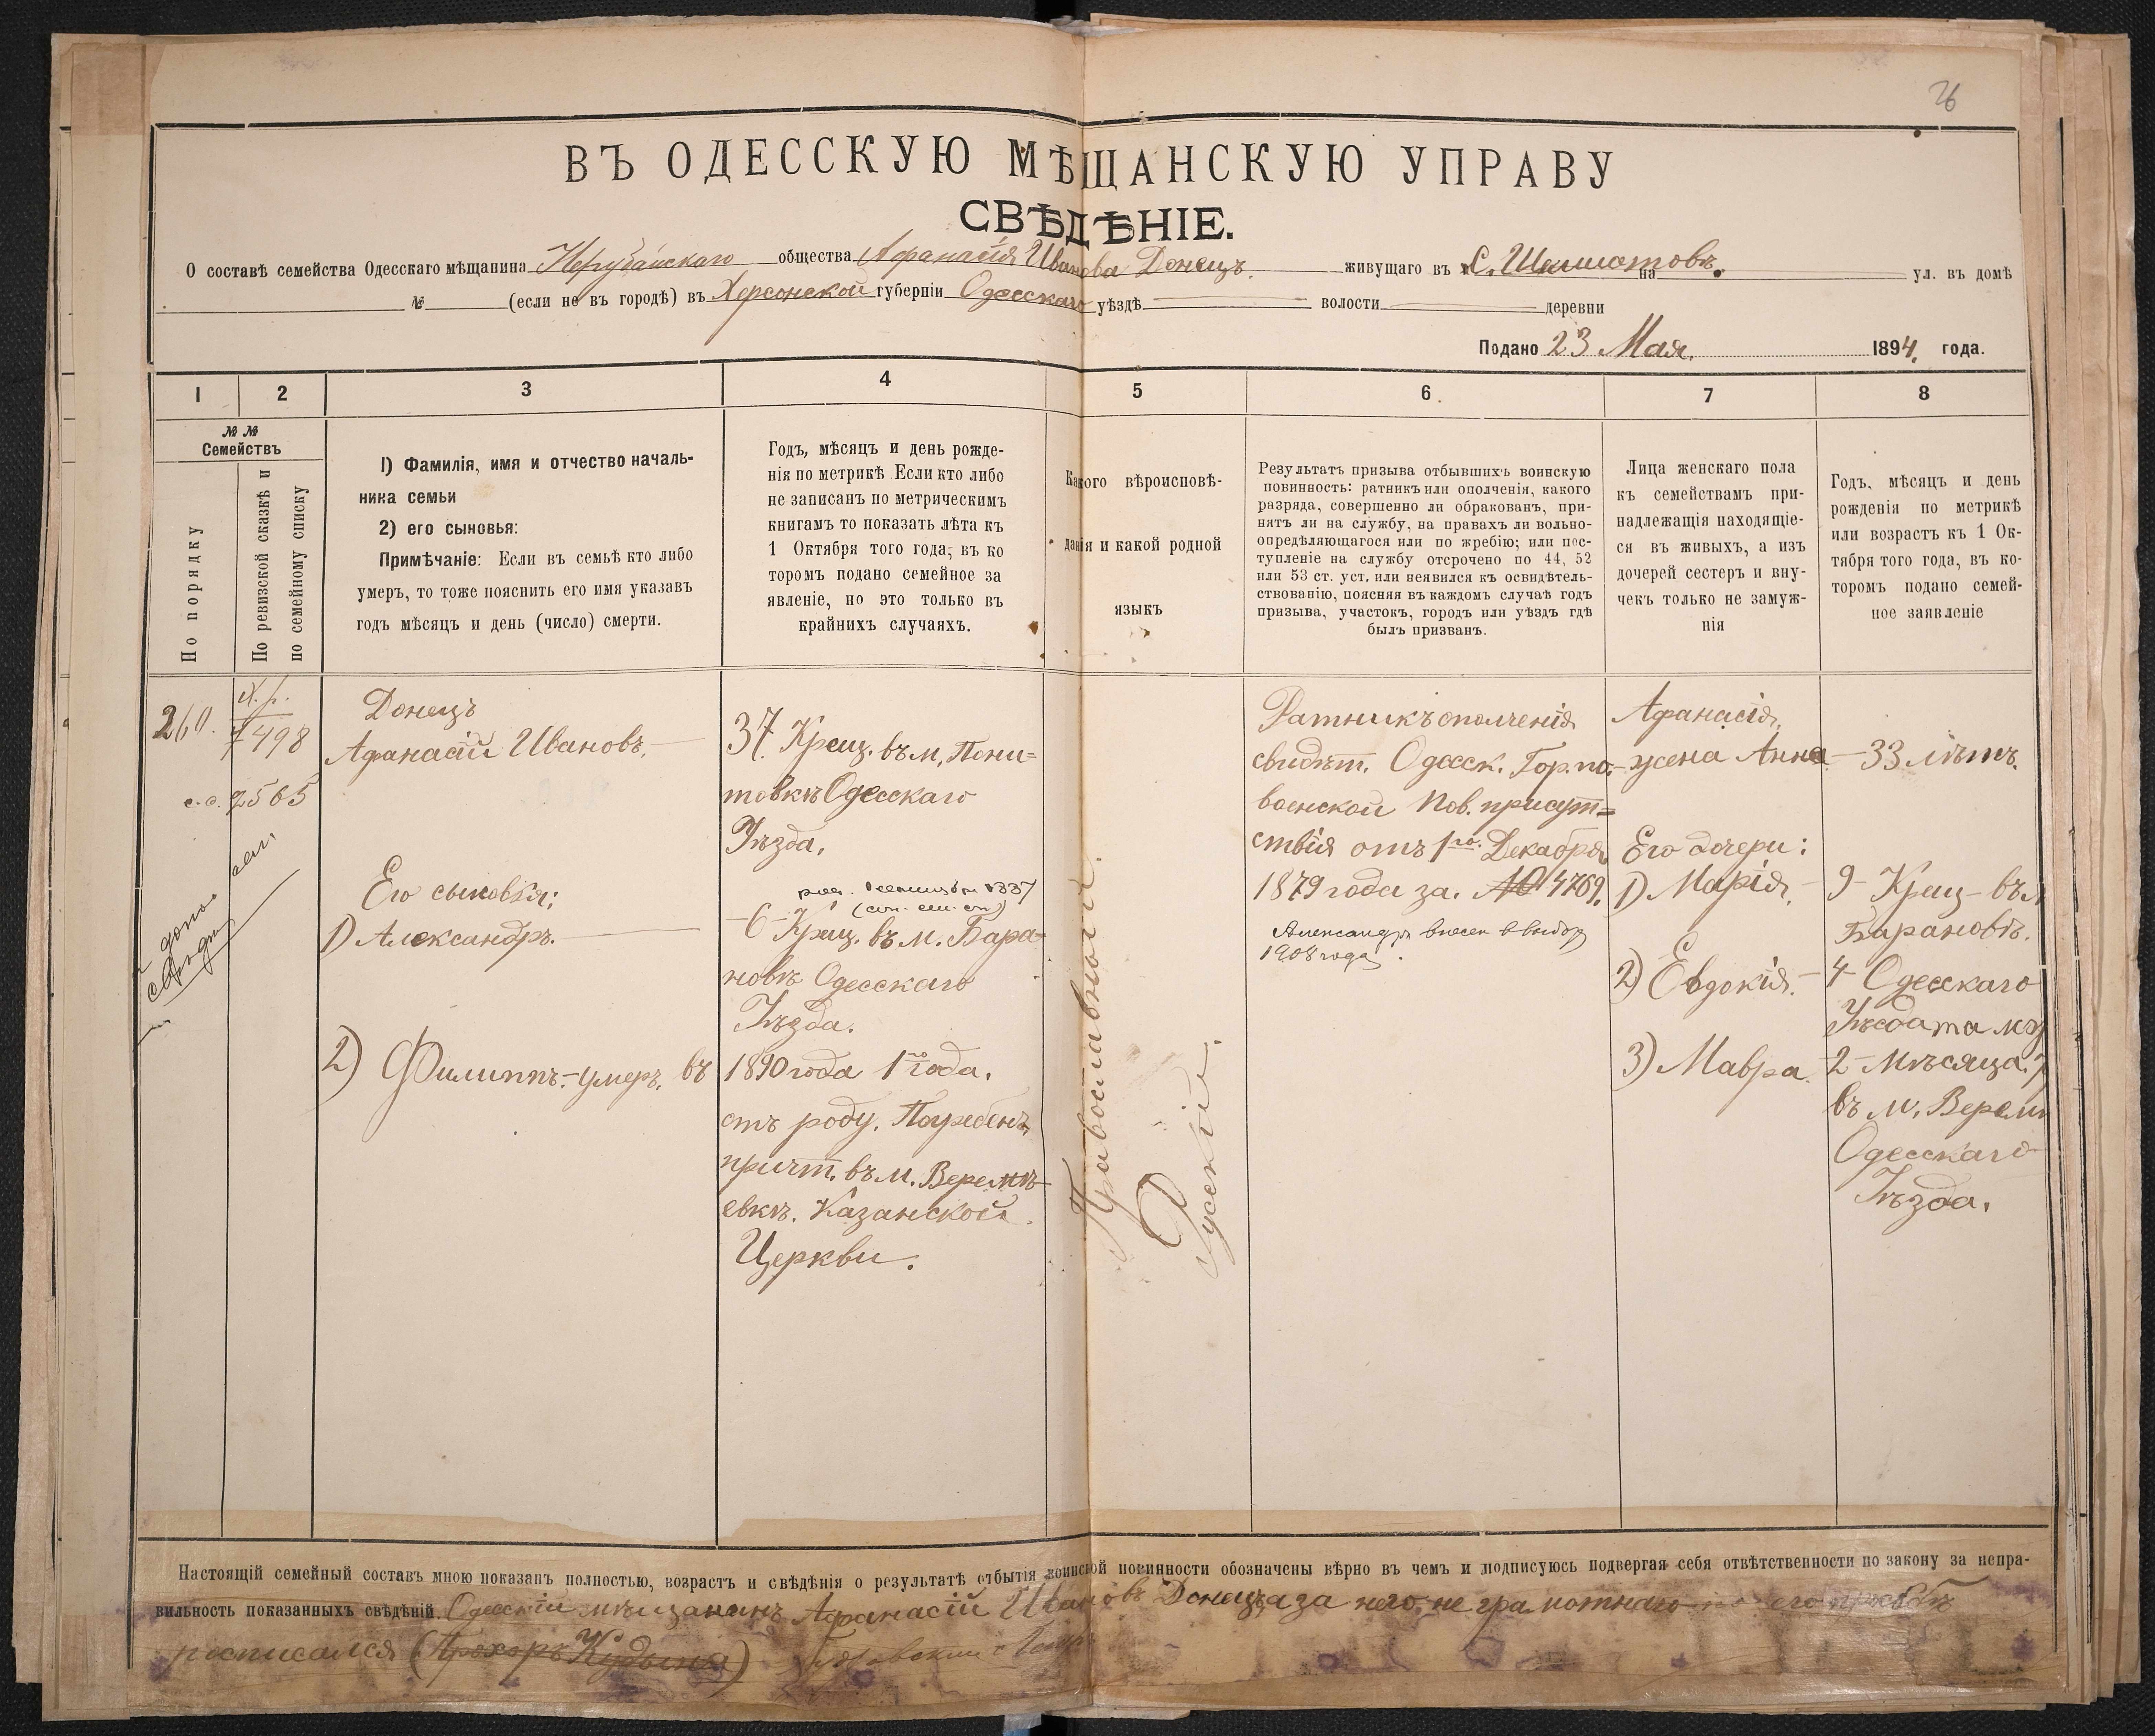 26
ВЪ ОДЕССКУЮ МѢЩАНСКУЮ УПРАВУ
СВѢДѢНІЕ.
О составѣ семейства Одесскаго мѣщанина Нерубайскаго общества Афанасія Иванова Донецъ. живущаго въ С. на ул. въ домѣ
№ (если не въ городѣ) въ Херсонской губерніи Одесскаго уѣздѣ волости деревни
Подано 23 Мая. 1894. года.
1 2 3 4 5 6 7 8
№ №
Семействъ
По порядку
По ревизской сказкѣ и
по семейному списку
1) Фамилія, имя и отчество началь-
ника семьи
2) его сыновья:
Примѣчаніе: Если въ семьѣ кто либо
умеръ, то тоже пояснить его имя указавъ
годъ мѣсяцъ и день (число) смерти.
Годъ, мѣсяцъ и день рожде-
нія по метрикѣ Если кто либо
не записанъ по метрическимъ
книгамъ то показать лѣта къ
1 Октября того года, въ ко
торомъ подано семейное за
явленіе, но это только въ
крайнихъ случаяхъ.
Какого вѣроисповѣ-
данія и какой родной
языкъ
Результатъ призыва отбывшихъ воинскую
повинность: ратникъ или ополченія, какого
разряда, совершенно ли обракованъ, при-
нятъ ли на службу, на правахъ ли вольно-
опредѣляющагося или по жребію; или пос-
тупленіе на службу отсрочено по 44, 52
или 53 ст. уст. или неявился къ освидѣтель-
ствованію, поясняя въ каждомъ случаѣ годъ
призыва, участокъ, городъ или уѣздъ гдѣ
былъ призванъ.
Лица женскаго пола
къ семействамъ при-
надлежащія находящіе-
ся въ живыхъ, а изъ
дочерей сестеръ и вну-
чекъ только не замуж-
нія
Годъ, мѣсяцъ и день
рожденія по метрикѣ
или возрастъ къ 1 Ок-
тября того года, въ ко-
торомъ подано семей-
ное заявленіе
260.
498
с. с. 2565
Донецъ
Афанасій Ивановъ.
Его сыновья:
1) Александръ.
2) Филиппъ.-умеръ. въ
37. Крещ. въ м. Пони-
товкѣ Одесскаго
Уѣзда.
6- Крещ. въ м. Бара-
новѣ Одесскаго
Уѣзда.
1890 года 1го года.
отъ роду. Погребенъ
причт. въ м. Веремѣ-
евкѣ. Казанской
Церкви.
Православнаго.
Русскій.
Ратникъ ополченія
свидѣт. Одесск. Гор. по-
воинской Пов. присут=
ствія отъ 1го. Декабря
1879 года за. № 4769.
Александръ внесен в выбор
1908 года.
Афанасія,
жена Анна
Его дочери:
1) Марія,
2) Евдокія.
3) Мавра.
33 лѣтъ.
9- Крещ- въ м
Барановѣ.
4- Одесскаго
Уѣзда та
2- мѣсяца.
въ м. Верем
Одесскаго
Уѣзда.
Настоящій семейный составъ мною показанъ полностью, возрастъ и свѣдѣнія о результатѣ отбытія воинской повинности обозначены вѣрно въ чемъ и подписуюсь подвергая себя отвѣтственности по закону за непра-
вильность показанныхъ свѣдѣній. Одесскій мѣщанинъ Афанасій Ивановъ Донецъ а за него, не грамотнаго по его прозьбѣ
росписался (Прохоръ